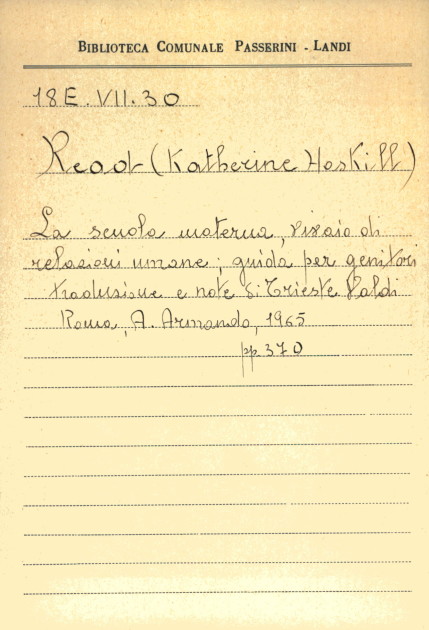 BIBLIOTECA COMUNALE PASSERINI - LANDI
18E.VII.30
Read (Katherine Haskill)
La scuola materna, vivaio di
relazioni umane; guida per genitori
traduzione e note di Trieste Valdi
Roma, A. Armando, 1965
pp. 370